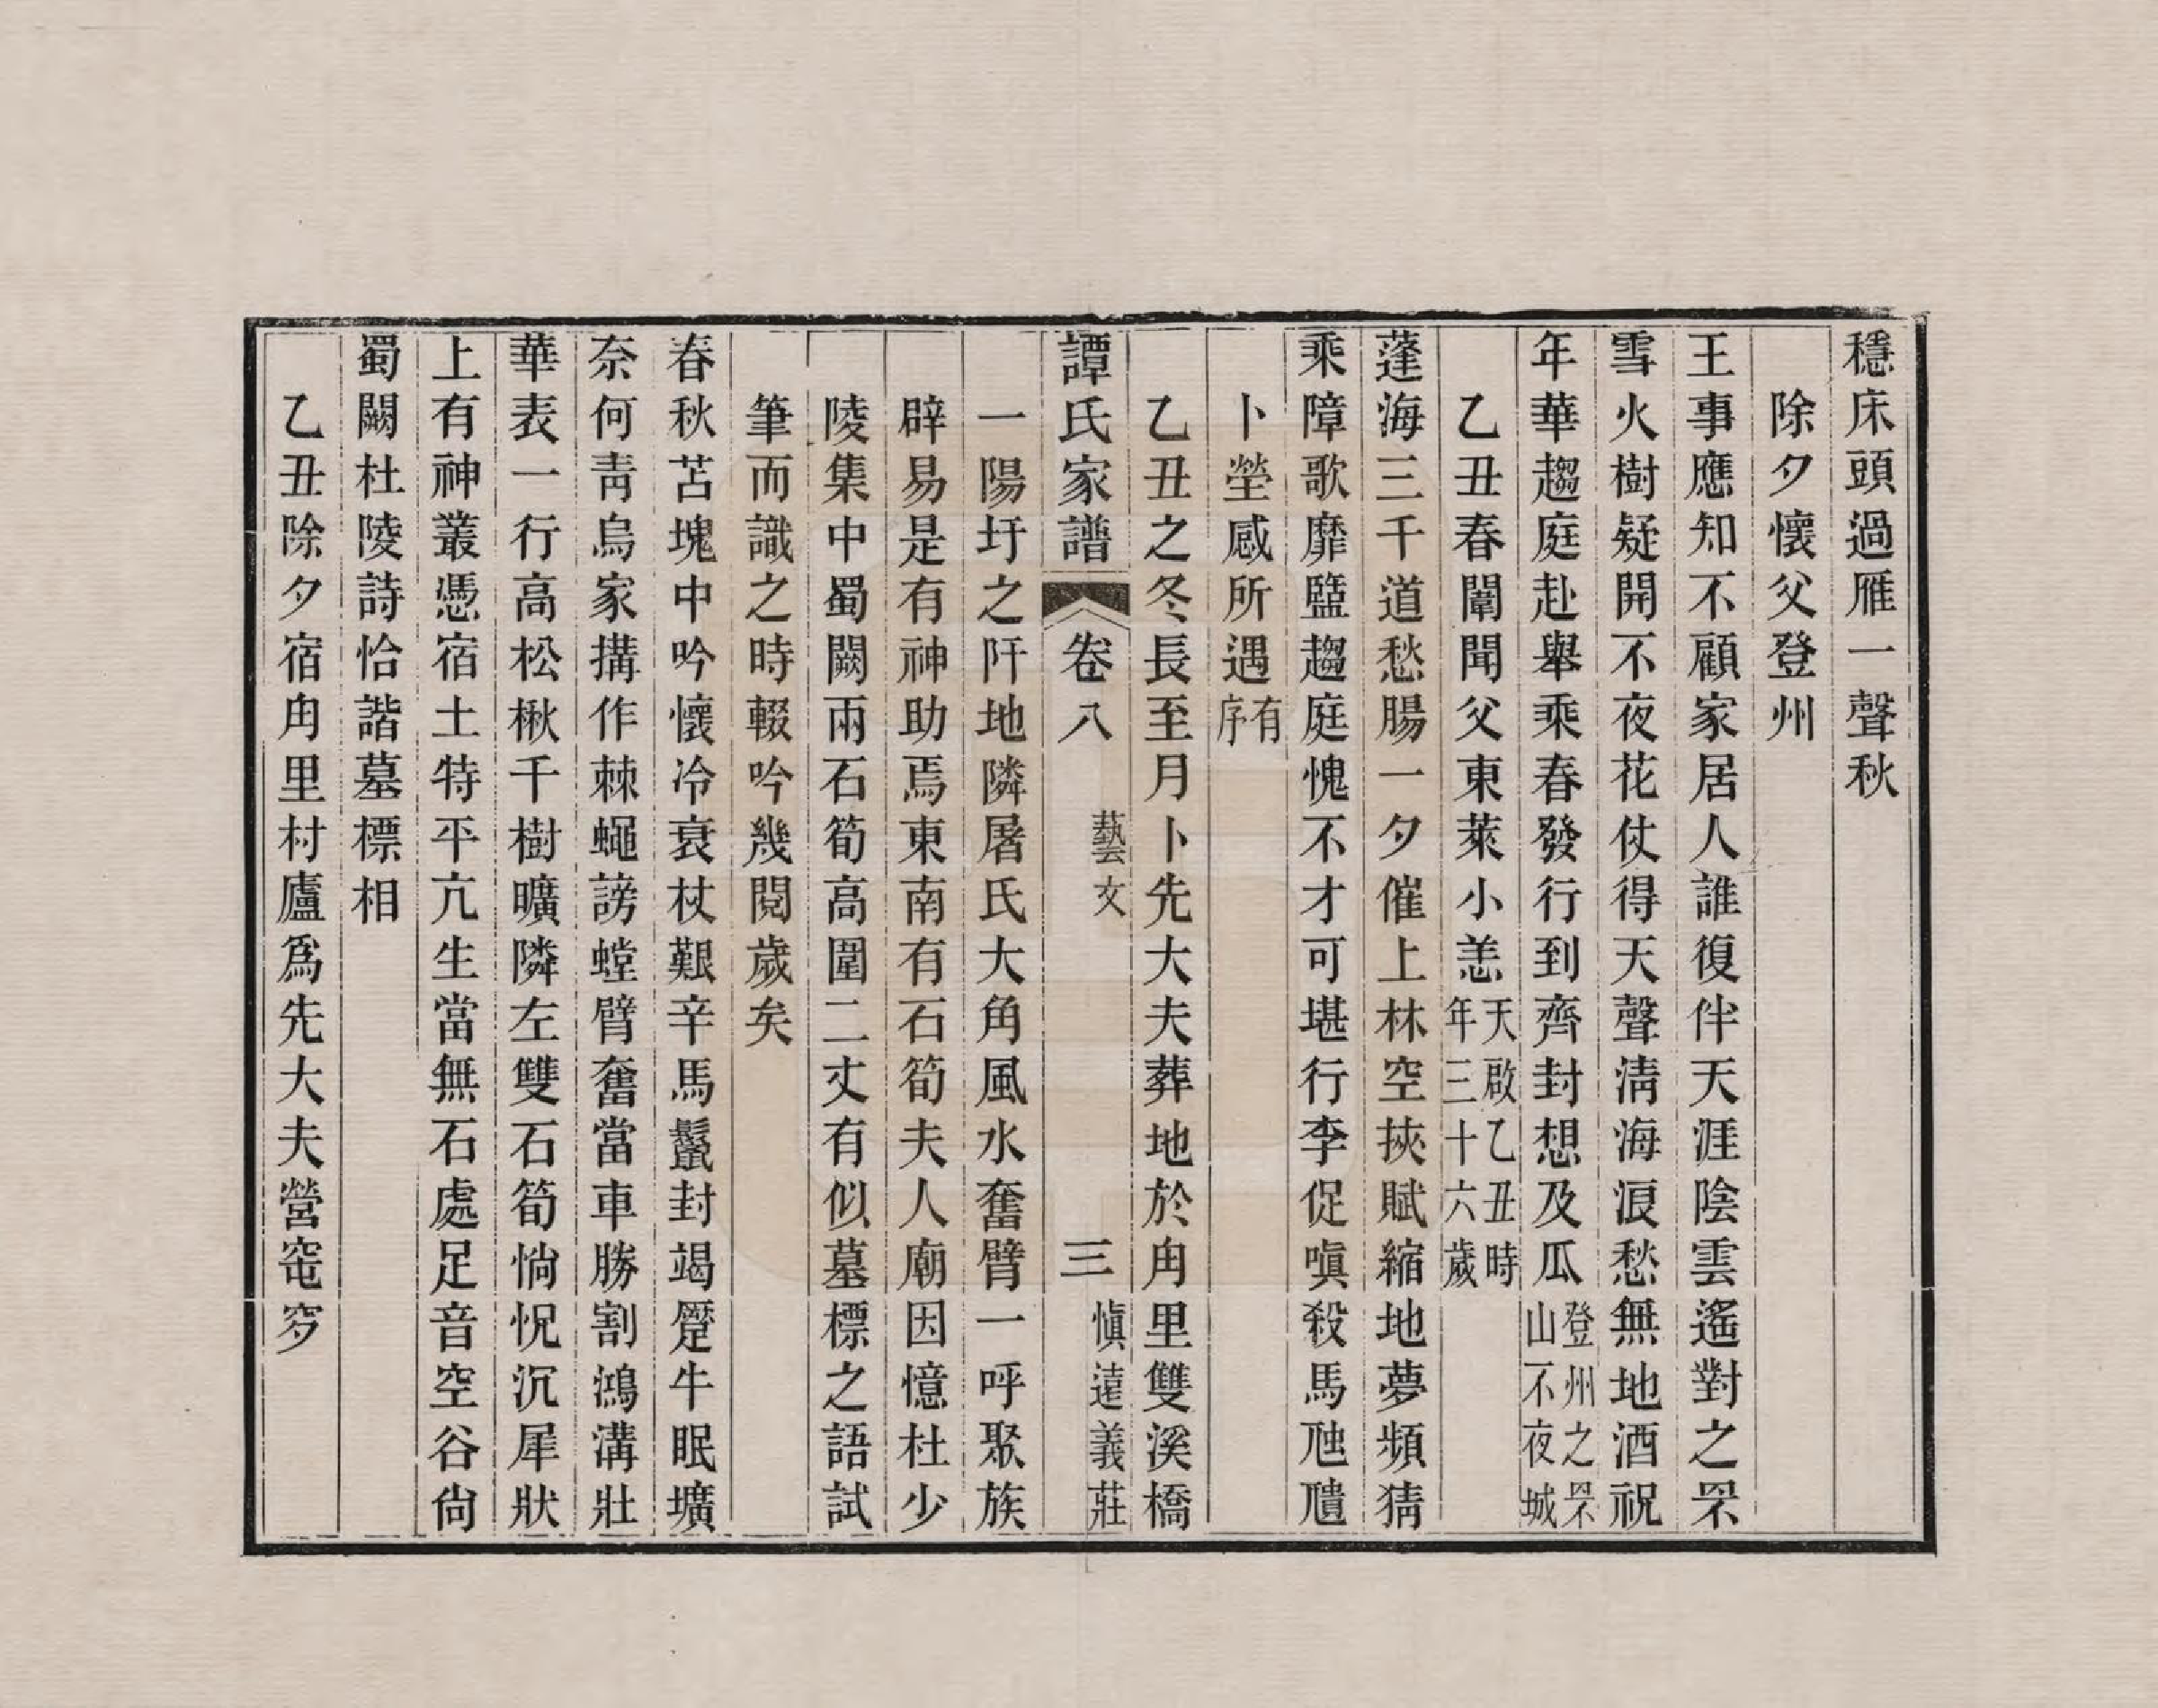 穩床頭過雁一聲秋
除夕懷父登州
王事應知不顧家居人誰復伴天涯陰雲遙對之罘
雪火樹疑開不夜花仗得天聲淸海浪愁無地酒祝
年華趨庭赴舉乘春發行到齊封想及瓜登州之罘山不夜城
乙丑春闈聞父東萊小恙天啟乙丑時年三十六歲
蓬海三千道愁腸一夕催上林空挾賦縮地夢頻猜
乘障歌靡盬趨庭愧不才可堪行李促嗔殺馬虺隤
卜塋感所遇有序
乙丑之冬長至月卜先大夫葬地於甪里雙溪橋
譚氏家譜 卷八 藝文 三 愼遠義莊
一陽圩之阡地隣屠氏大角風水奮臂一呼聚族
辟易是有神助焉東南有石筍夫人廟因憶杜少
陵集中蜀闕兩石筍高圍二丈有似墓標之語試
筆而識之時輟吟幾閱歲矣
春秋苫塊中吟懷冷衰杖艱辛馬鬣封竭蹷牛眠壙
奈何靑烏家搆作棘蠅謗螳臂奮當車勝割鴻溝壯
華表一行高松楸千樹曠隣左雙石筍惝怳沉犀狀
上有神叢憑宿土特平亢生當無石處足音空谷尙
蜀闕杜陵詩恰諧墓標相
乙丑除夕宿甪里村廬爲先大夫營窀穸